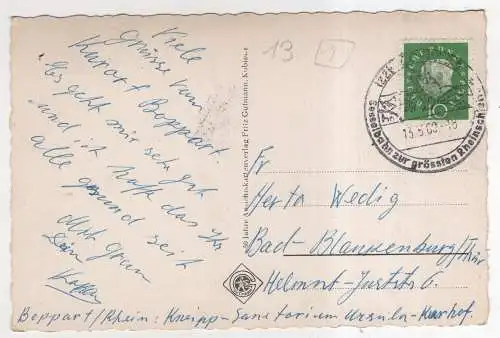 Viele
Grüsse vom
Kurort Boppart.
Es geht mir sehr gut
und ich hoffe das Ihr
alle gesund seit
Mit
Dein
13
1
60 Jahre Ansichtskartenverlag Fritz Gutmann, Koblenz
10
(22b)
13.5.60-18
Sesselbahn zur grössten Rheinschleife
Fr
Herta Wedig
Bad-Blankenburg/Thür
Boppart/Rhein: Kneipp-Sanatorium Ursula-Kurhof.